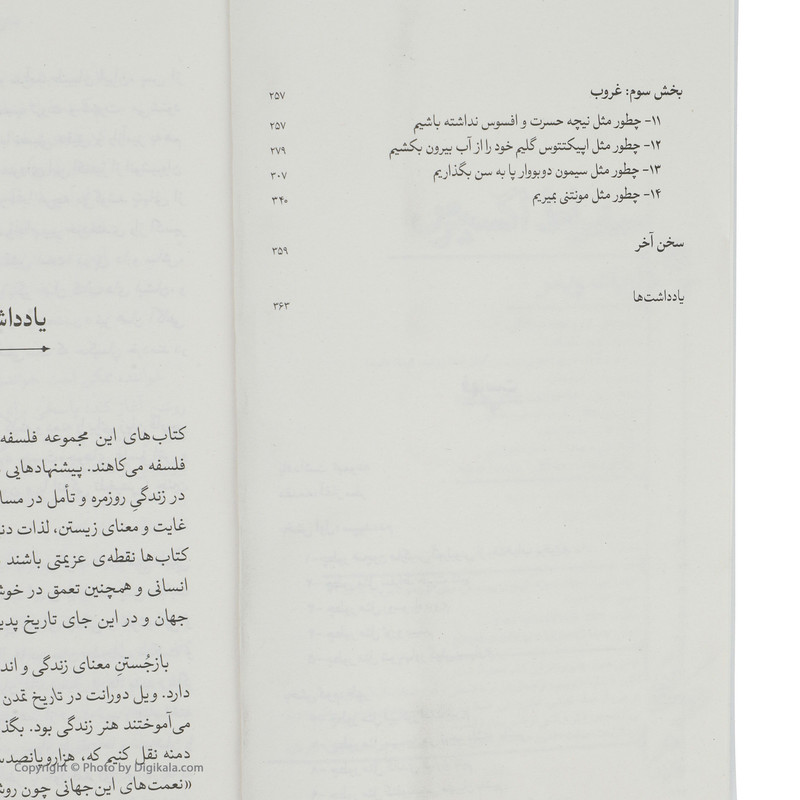 بخش سوم: غروب ۲۵۷
۱۱- چطور مثل نیچه حسرت و افسوس نداشته باشیم ۲۵۷
۱۲- چطور مثل اپیکتتوس گلیم خود را از آب بیرون بکشیم ۲۷۹
۱۳- چطور مثل سیمون دوبووار پا به سن بگذاریم ۳۰۷
۱۴- چطور مثل مونتنی بمیریم ۳۴۰
سخن آخر ۳۵۹
یادداشت‌ها ۳۶۳
کتاب‌های این مجموعه فلسفه
فلسفه می‌کاهند. پیشنهادهایی
در زندگیِ روزمره و تأمل در
غایت و معنای زیستن، لذات
کتاب‌ها نقطه‌ی عزیمتی باشند
انسانی و همچنین تعمق در
جهان و در این جای تاریخ
بازجُستنِ معنای زندگی و
دارد. ویل دورانت در تاریخ تمدن
می‌آموختند هنر زندگی بود.
دمنه نقل کنیم که،
«نعمت‌های این‌جهانی چون
Copyright © Photo by Digikala.com